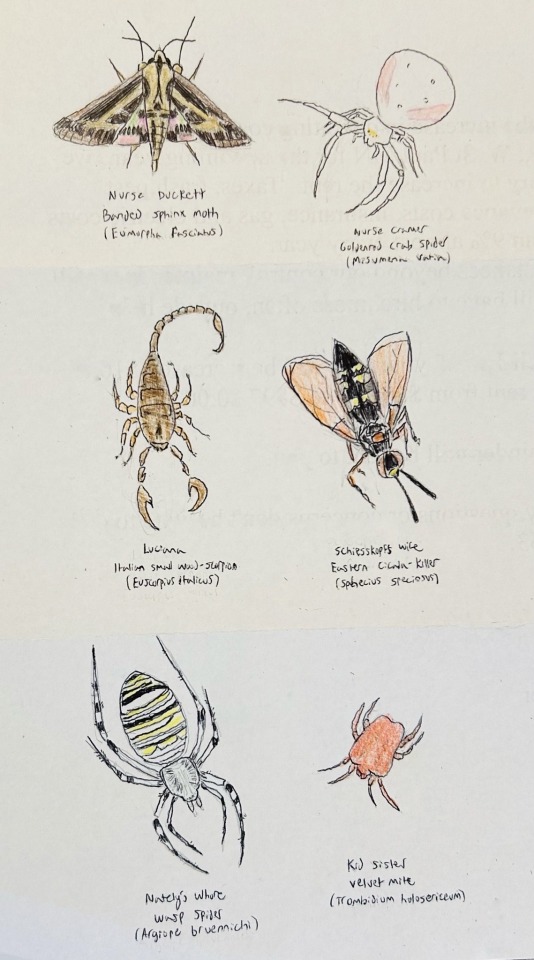 Nurse Duckett
Banded sphinx moth
(Eumorpha fasciatus)
Nurse Cramer
Goldenrod crab spider
(Misumena vatia)
Luciana
Italian small wood-scorpion
(Euscorpius italicus)
Scheisskopfs wife
Eastern Cicada-Killer
(Sphecius speciosus)
Nately's whore
wasp spider
(Argiope bruennichi)
Kid sister
velvet mite
(Trombidium holosericeum)